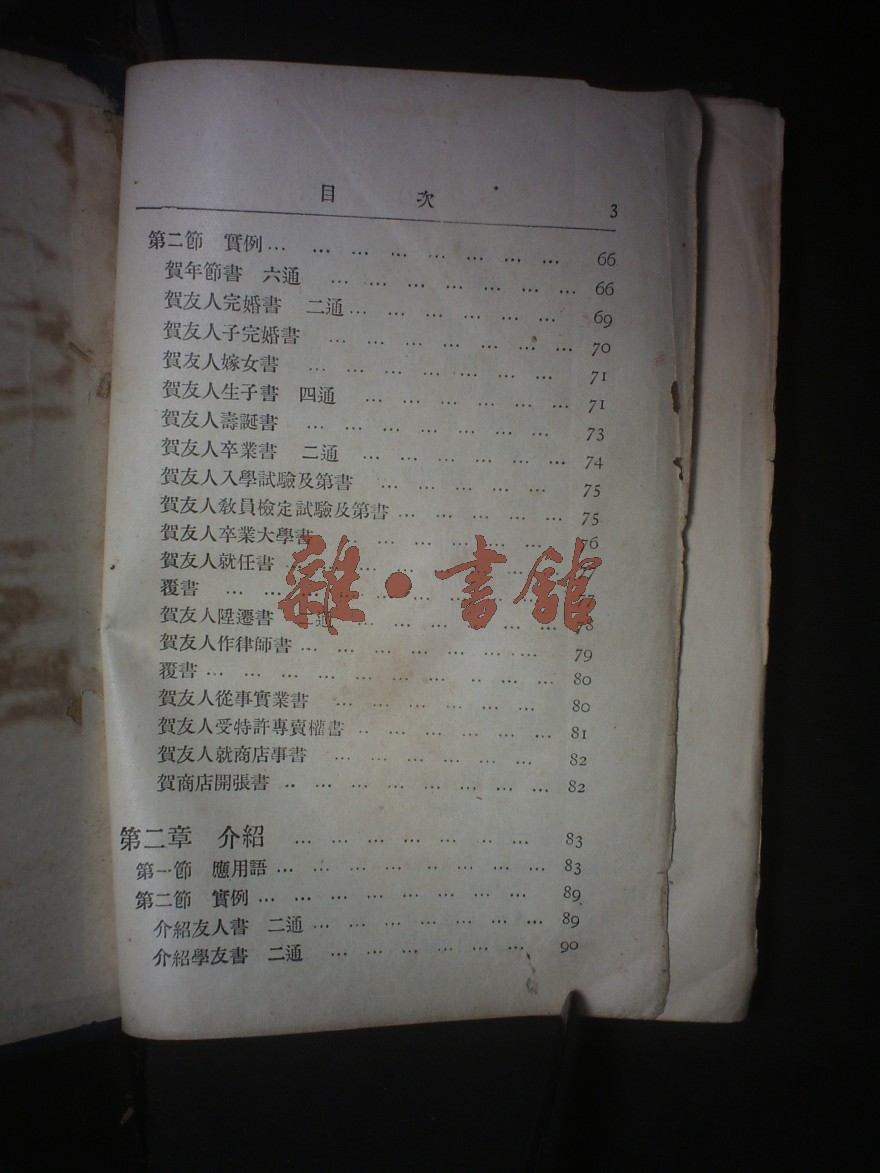 目 次 3
第二節 實例… … … … … … … … 66
賀年節書 六通 … … … … … … … 66
賀友人完婚書 二通… … … … … … 69
賀友人子完婚書 … … … … … … … 70
賀友人嫁女書 … … … … … … … 71
賀友人生子書 四通 … … … … … … 71
賀友人壽誕書 … … … … … … … 73
賀友人卒業書 二通 … … … … … … 74
賀友人入學試驗及第書 … … … … … 75
賀友人敎員檢定試驗及第書… … … … … 75
賀友人卒業大學書 … … … … … … 76
賀友人就任書 … … … … … …
覆書 … … … … … … … … …
賀友人陞遷書 二通 … … … … … … 78
賀友人作律師書… … … … … … … 79
覆書… … … … … … … … … … 80
賀友人從事實業書 … … … … … … 80
賀友人受特許專賣權書 … … … … … … 81
賀友人就商店事書 … … … … … … 82
賀商店開張書 … … … … … … … … 82
第二章 介紹 … … … … … … … 83
第一節 應用語… … … … … … … … 83
第二節 實例… … … … … … … … … 89
介紹友人書 二通… … … … … … … 89
介紹學友書 二通 … … … … … … 90
雜·書館